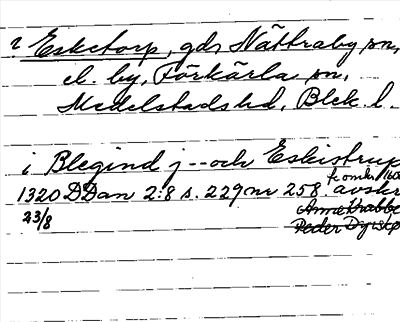 ? Esketorp, gdr Nättraby sn,
el. by, Förkärla sn,
Medelstads hd, Blek. l.
i Blegind j -- och Eskistrup
1320 DDan 2:8 s. 229 nr 258. avskr
fr omkr 1600
23/8
Anne Krabbe
Peder Dyrskj